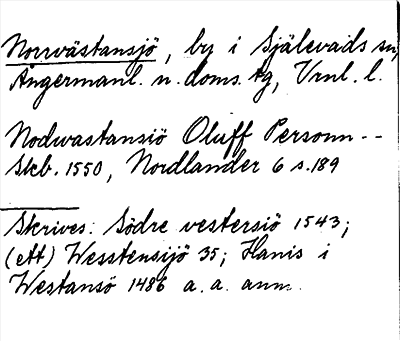 Norrvästansjö, by i Själevads sn,
Ångermanl. n. doms. tg, Vrnl. l.
Nodwastansiö Oluff Personn --
Skb. 1550, Nordlander 6 s. 189
Skrives: Södre vestersiö 1543;
(ett) Wesstensijö 35; Hanis i
Westansö 1486 a. a. anm.